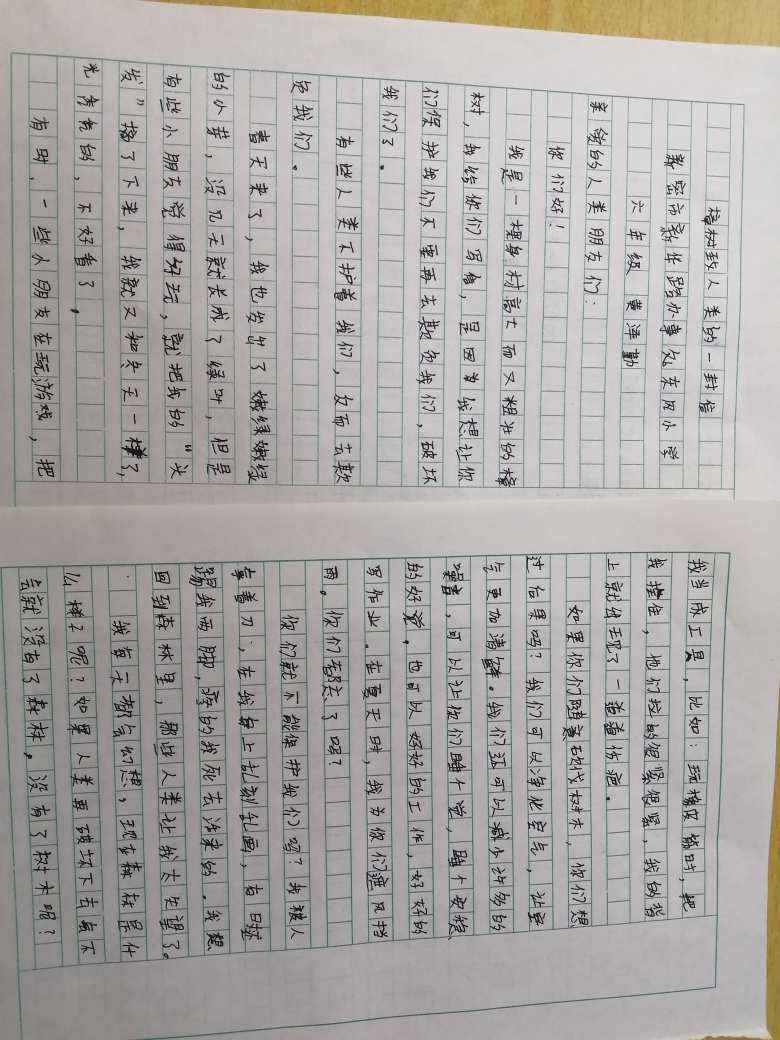 橦树致人类的一封信
新密市新华路办事处东风小学
六年级 黄
亲爱的人类朋友们:
你们好!
我是一棵身材高大而又粗壮的橦
树,我给你们写信,是因为我想让你
们保护我们不要再去欺负我们,破坏
我们了。
有些人类不护着我们,反而去欺
负我们。
春天来了,我也发出了嫩绿嫩绿
的小芽,没几天就长成了绿叶,但是
有些小朋友觉得好玩,就把我的“头
发”摘了下来,我就又和冬天一样了,
光秃秃的,不好看了。
有时,一些小朋友在玩游戏,把
我当成工具,比如:玩橡皮筋时,把
我拴住,他们拉的很紧很紧,我的背
上就出现了一道道伤疤。
如果你们随意砍伐树木,你们想
过后果吗?我们可以净化空气,让空
气更加清鲜。我们还可以减少许多的
噪音,可以让你们睡个觉,睡个安稳
的好觉。也可以好好的工作,好好的
写作业。在夏天时,我为你们遮风挡
雨。你们都忘了吗?
你们就不能保护我们吗?我被人
拿着刀,在我身上乱刻乱画,有时
踢我两脚,疼的我死去活来的。我想
回到森林里,那些人类让我太失望了。
我每天都会幻想,现在森林是什
么样了呢?如果人类再破坏下去会不
会就没有了森林。没有了树木呢?